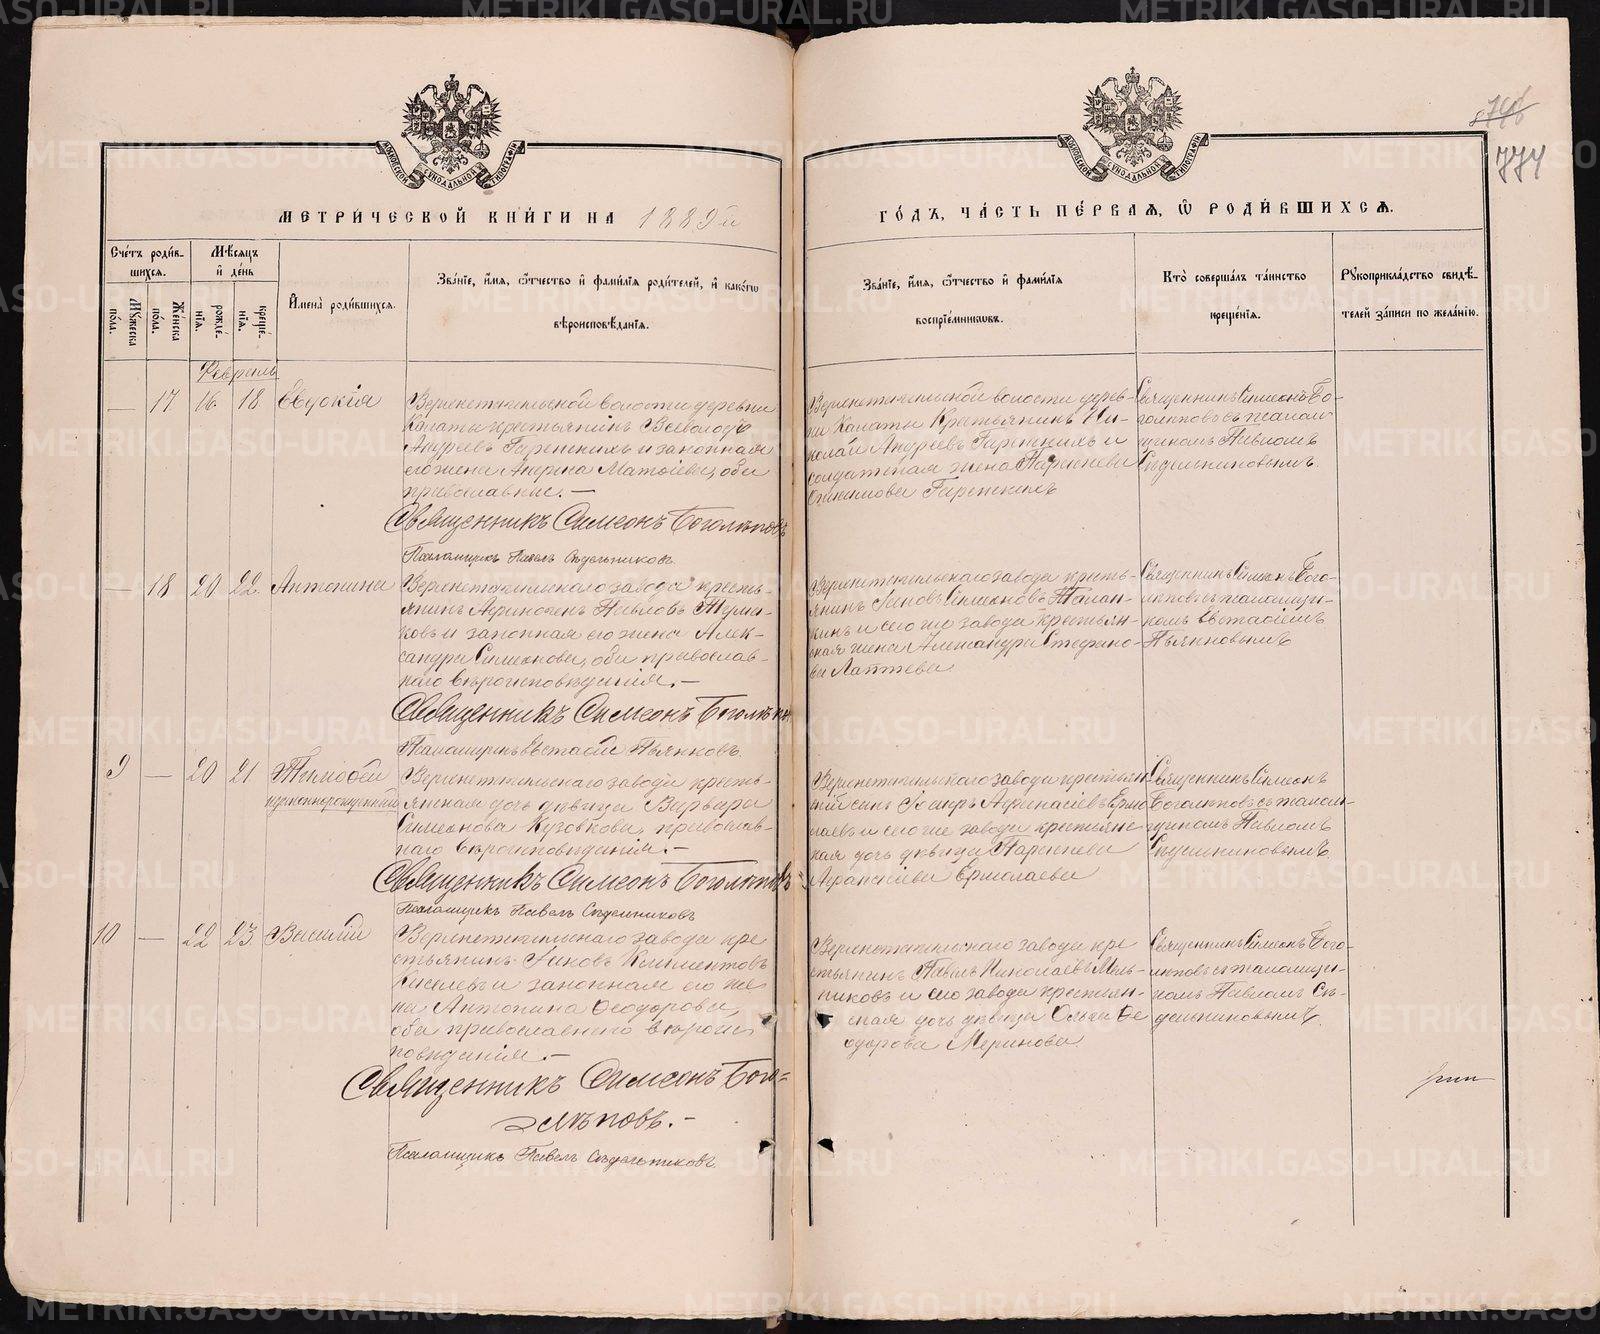 МЕТРИ́ЧЕСКОЙ КНИ́ГИ НА 1889й
ГО́ДЪ, ЧА́СТЬ ПЕ́РВАѦ, Ѡ РОДИ́ВШИХСѦ.
774
Сче́тъ роди́в-
шихсѧ.
Мѣ́сѧцъ
и де́нь
Мꙋ́жеска по́ла.
Же́нска по́ла.
рожде́-
нїѧ.
креще́-
нїѧ.
И҆мена̀ роди́вшихсѧ.
Зва́нїе, и҆́мѧ, ѻ҆́тчество и҆ фами́лїѧ роди́телей, и҆ како́гѡ
вѣроисповѣ́данїѧ.
Зва́нїе, и҆́мѧ, ѻ҆́тчество и҆ фами́лїѧ
воспрїе́мниковъ.
Кто̀ соверша́лъ та́инство
креще́нїѧ.
Рꙋкоприкла́дство свидѣ́-
телей за́писи по жела́нїю.
Февраль
— 17 16 18 Евдокія
Верхнетагильской волости деревни
Крестьянинъ Всеволодъ
Андреевъ и законная
его жена Матвіева, оба
православные. —
Священникъ Симеонъ Боголѣповъ
Псаломщикъ Павелъ Сѣдельниковъ
Верхнетагильской волости дерев-
ни крестьянинъ Ни-
колай Андреевъ и
солдатская жена Парѳенева
Священникъ Симеонъ Бо-
голѣповъ съ псалом-
щикомъ Павломъ
Сѣдельниковымъ.
— 18 20 22 Антонина
Верхнетагильскаго завода кресть-
янинъ Аѳиногенъ Павловъ
и законная его жена Алек-
сандра Симеонова, оба православ-
наго вѣроисповѣданія. —
Священникъ Симеонъ Боголѣповъ
Псаломщикъ Евстаѳій Пьянковъ
Верхнетагильскаго завода кресть-
янинъ Іаковъ Симеоновъ Талан-
кинъ и того же завода крестьян-
ская жена Александра Стефано-
ва Лаптева
Священникъ Симеонъ Бого-
лѣповъ съ псаломщи-
комъ Евстаѳіемъ
Пьянковымъ
9 — 20 21 Тимоѳей
незаконнорожденный
Верхнетагильскаго завода кресть-
янская дочь дѣвица Варвара
Симеонова Кузовкова, православ-
наго вѣроисповѣданія. —
Священникъ Симеонъ Боголѣповъ
Псаломщикъ Павелъ Сѣдельниковъ
Верхнетагильскаго завода крестьян-
скій сынъ Аѳанасіевъ Ермо-
лаевъ и того же завода крестьянс-
кая дочь дѣвица Парѳенева
Аѳанасіева Ермолаева
Священникъ Симеонъ
Боголѣповъ съ псалом-
щикомъ Павломъ
Сѣдельниковымъ
10 — 22 23 Василій
Верхнетагильскаго завода кре
стьянинъ Іаковъ Климентовъ
Киселевъ и законная его же
на Антонина Ѳеодорова,
оба православнаго вѣроис
повѣданія. —
Священникъ Симеонъ Бого-
лѣповъ. —
Псаломщикъ Павелъ Сѣдельниковъ.
Верхнетагильскаго завода кре
стьянинъ Павелъ Николаевъ Мель-
никовъ и того завода крестьян-
ская дочь дѣвица Ольга Ѳе
одорова Меринова.
Священникъ Симеонъ Бого-
лѣповъ съ псаломщи-
комъ Павломъ Сѣ-
дельниковымъ.
METRIKI.GASO-URAL.RU